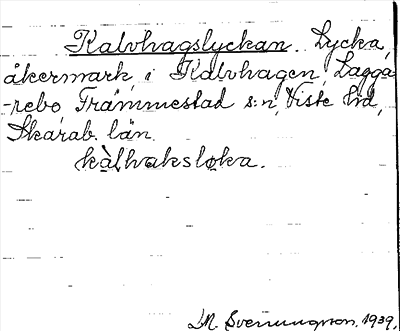 Kalvhagslyckan. Lycka,
åkermark, i Kalvhagen, Lagga-
-rebo, Främmestad s:n, Viste hd,
Skarab. län.
kàlhvaksløka.
M. Svenungson. 1939.